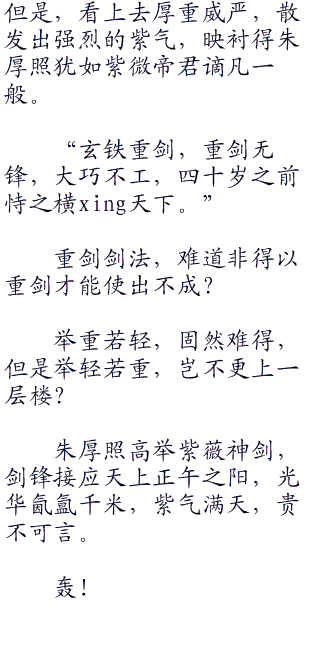 但是，看上去厚重威严，散
发出强烈的紫气，映衬得朱
厚照犹如紫微帝君谪凡一
般。
“玄铁重剑，重剑无
锋，大巧不工，四十岁之前
恃之横xing天下。”
重剑剑法，难道非得以
重剑才能使出不成？
举重若轻，固然难得，
但是举轻若重，岂不更上一
层楼？
朱厚照高举紫薇神剑，
剑锋接应天上正午之阳，光
华氤氲千米，紫气满天，贵
不可言。
轰！